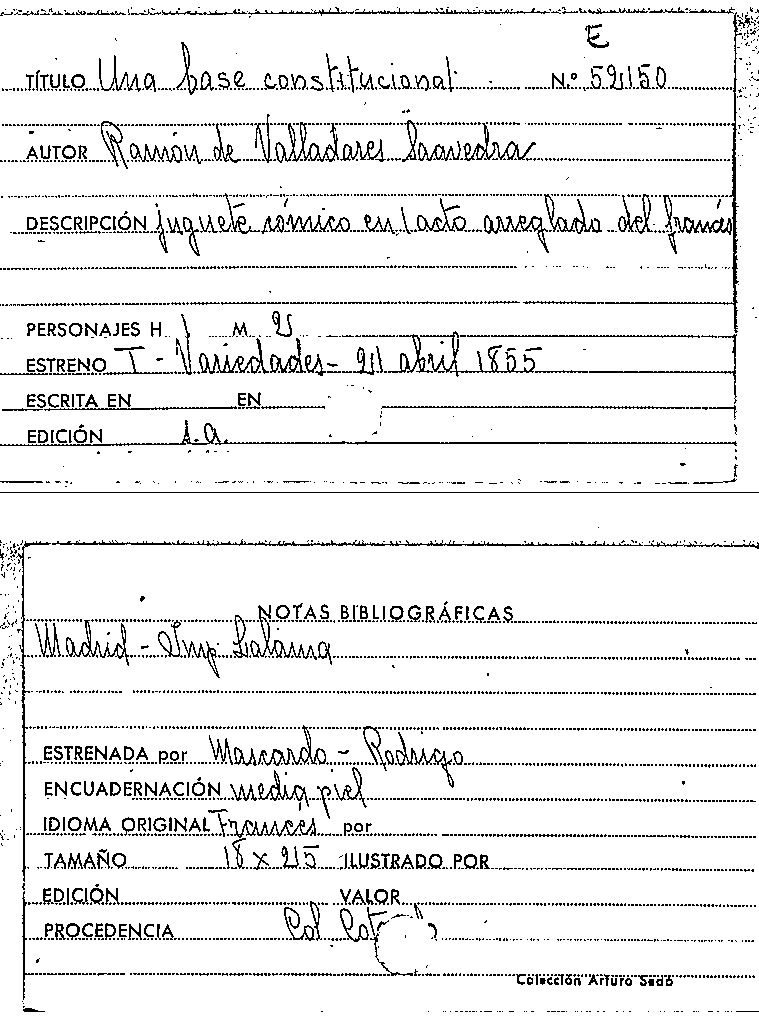 E
TÍTULO Una base constitucional. N.º 59150
AUTOR Ramón de Valladares Saavedra
DESCRIPCIÓN juguete cómico en 1 acto arreglado del francés
PERSONAJES H 1 M 2
ESTRENO T - Variedades - abril 1855
ESCRITA EN EN
EDICIÓN s.a.
NOTAS BIBLIOGRÁFICAS
Madrid - Imp. Lalama
ESTRENADA por Mascardo - Rodrigo
ENCUADERNACIÓN media piel
IDIOMA ORIGINAL Frances por
TAMAÑO 18 x ILUSTRADO POR
EDICIÓN VALOR
PROCEDENCIA Col
Colección Arturo Sedó